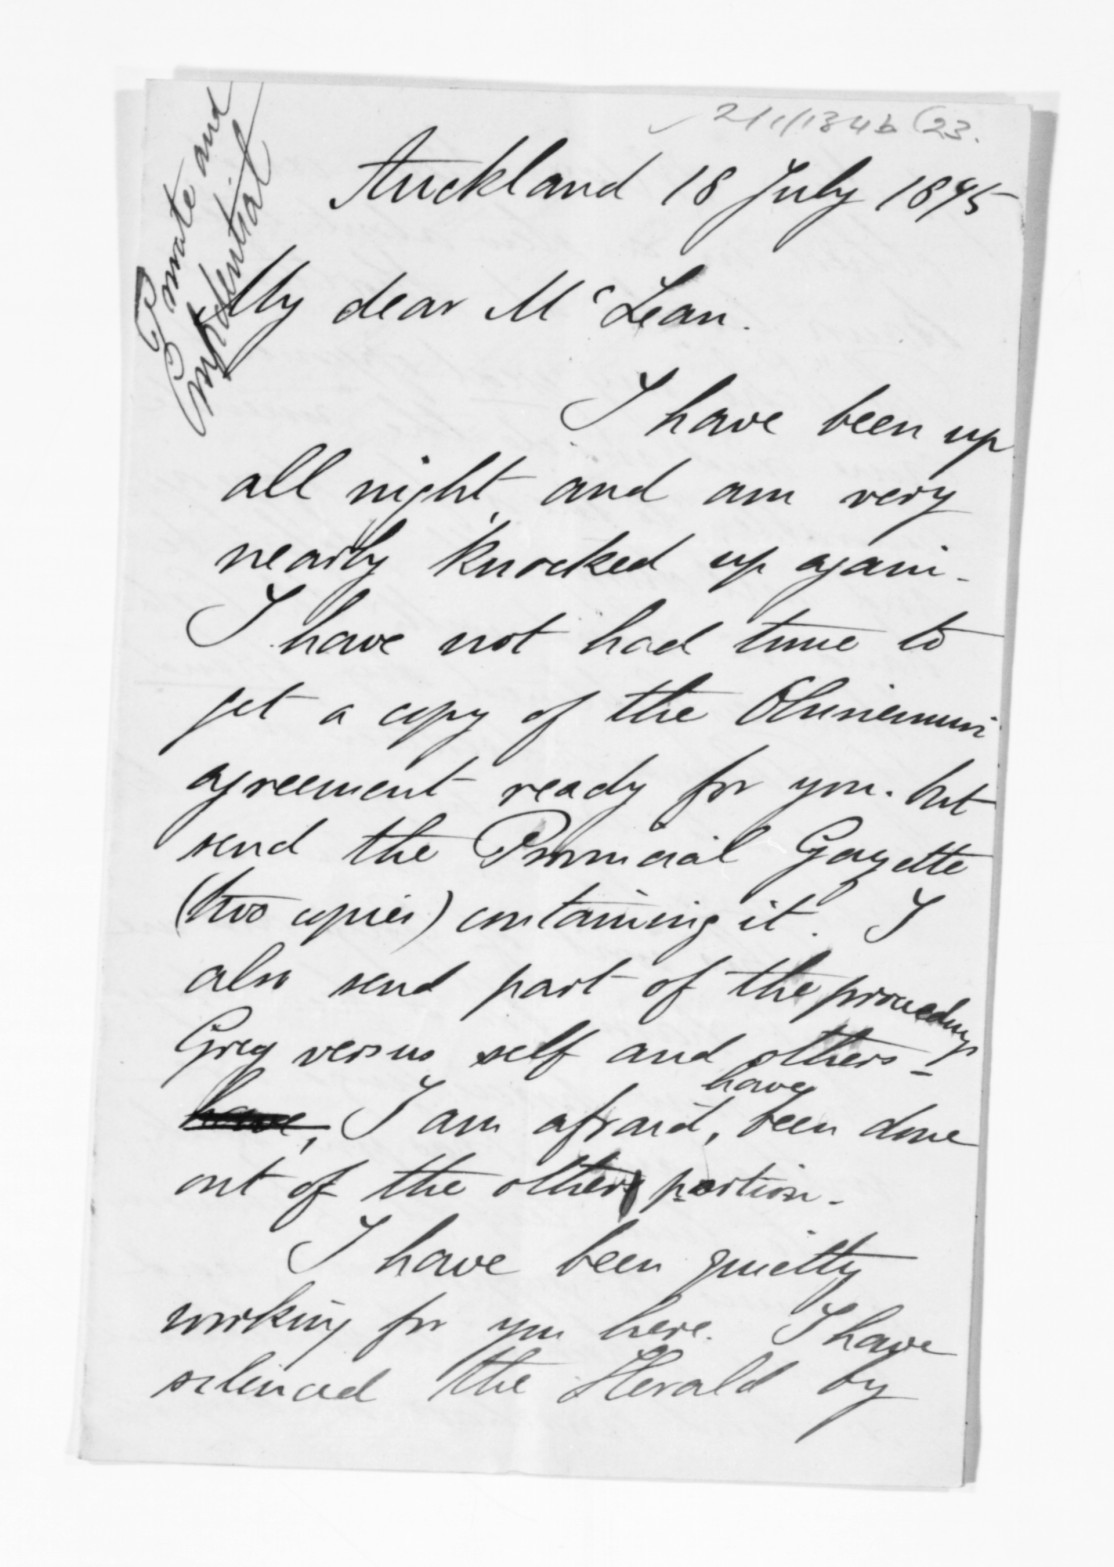 2/1/134b (23.
Private and
Confidential
Auckland 18 July 1875
My dear McLean.
I have been up
all night, and am very
nearly knocked up again.
I have not had time to
get a copy of the Ohinemuri
agreement ready for you. but
send the Provincial Gazette
(two copies) containing it. I
also send part of the proceedings
Greg versus self and others -
have, I am afraid, have been done
out of the other portion.
I have been quietly
working for you here. I have
silenced the Herald by